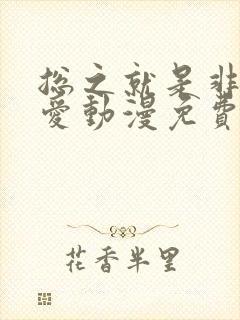 总之就是非
愛動漫免費
花香半里